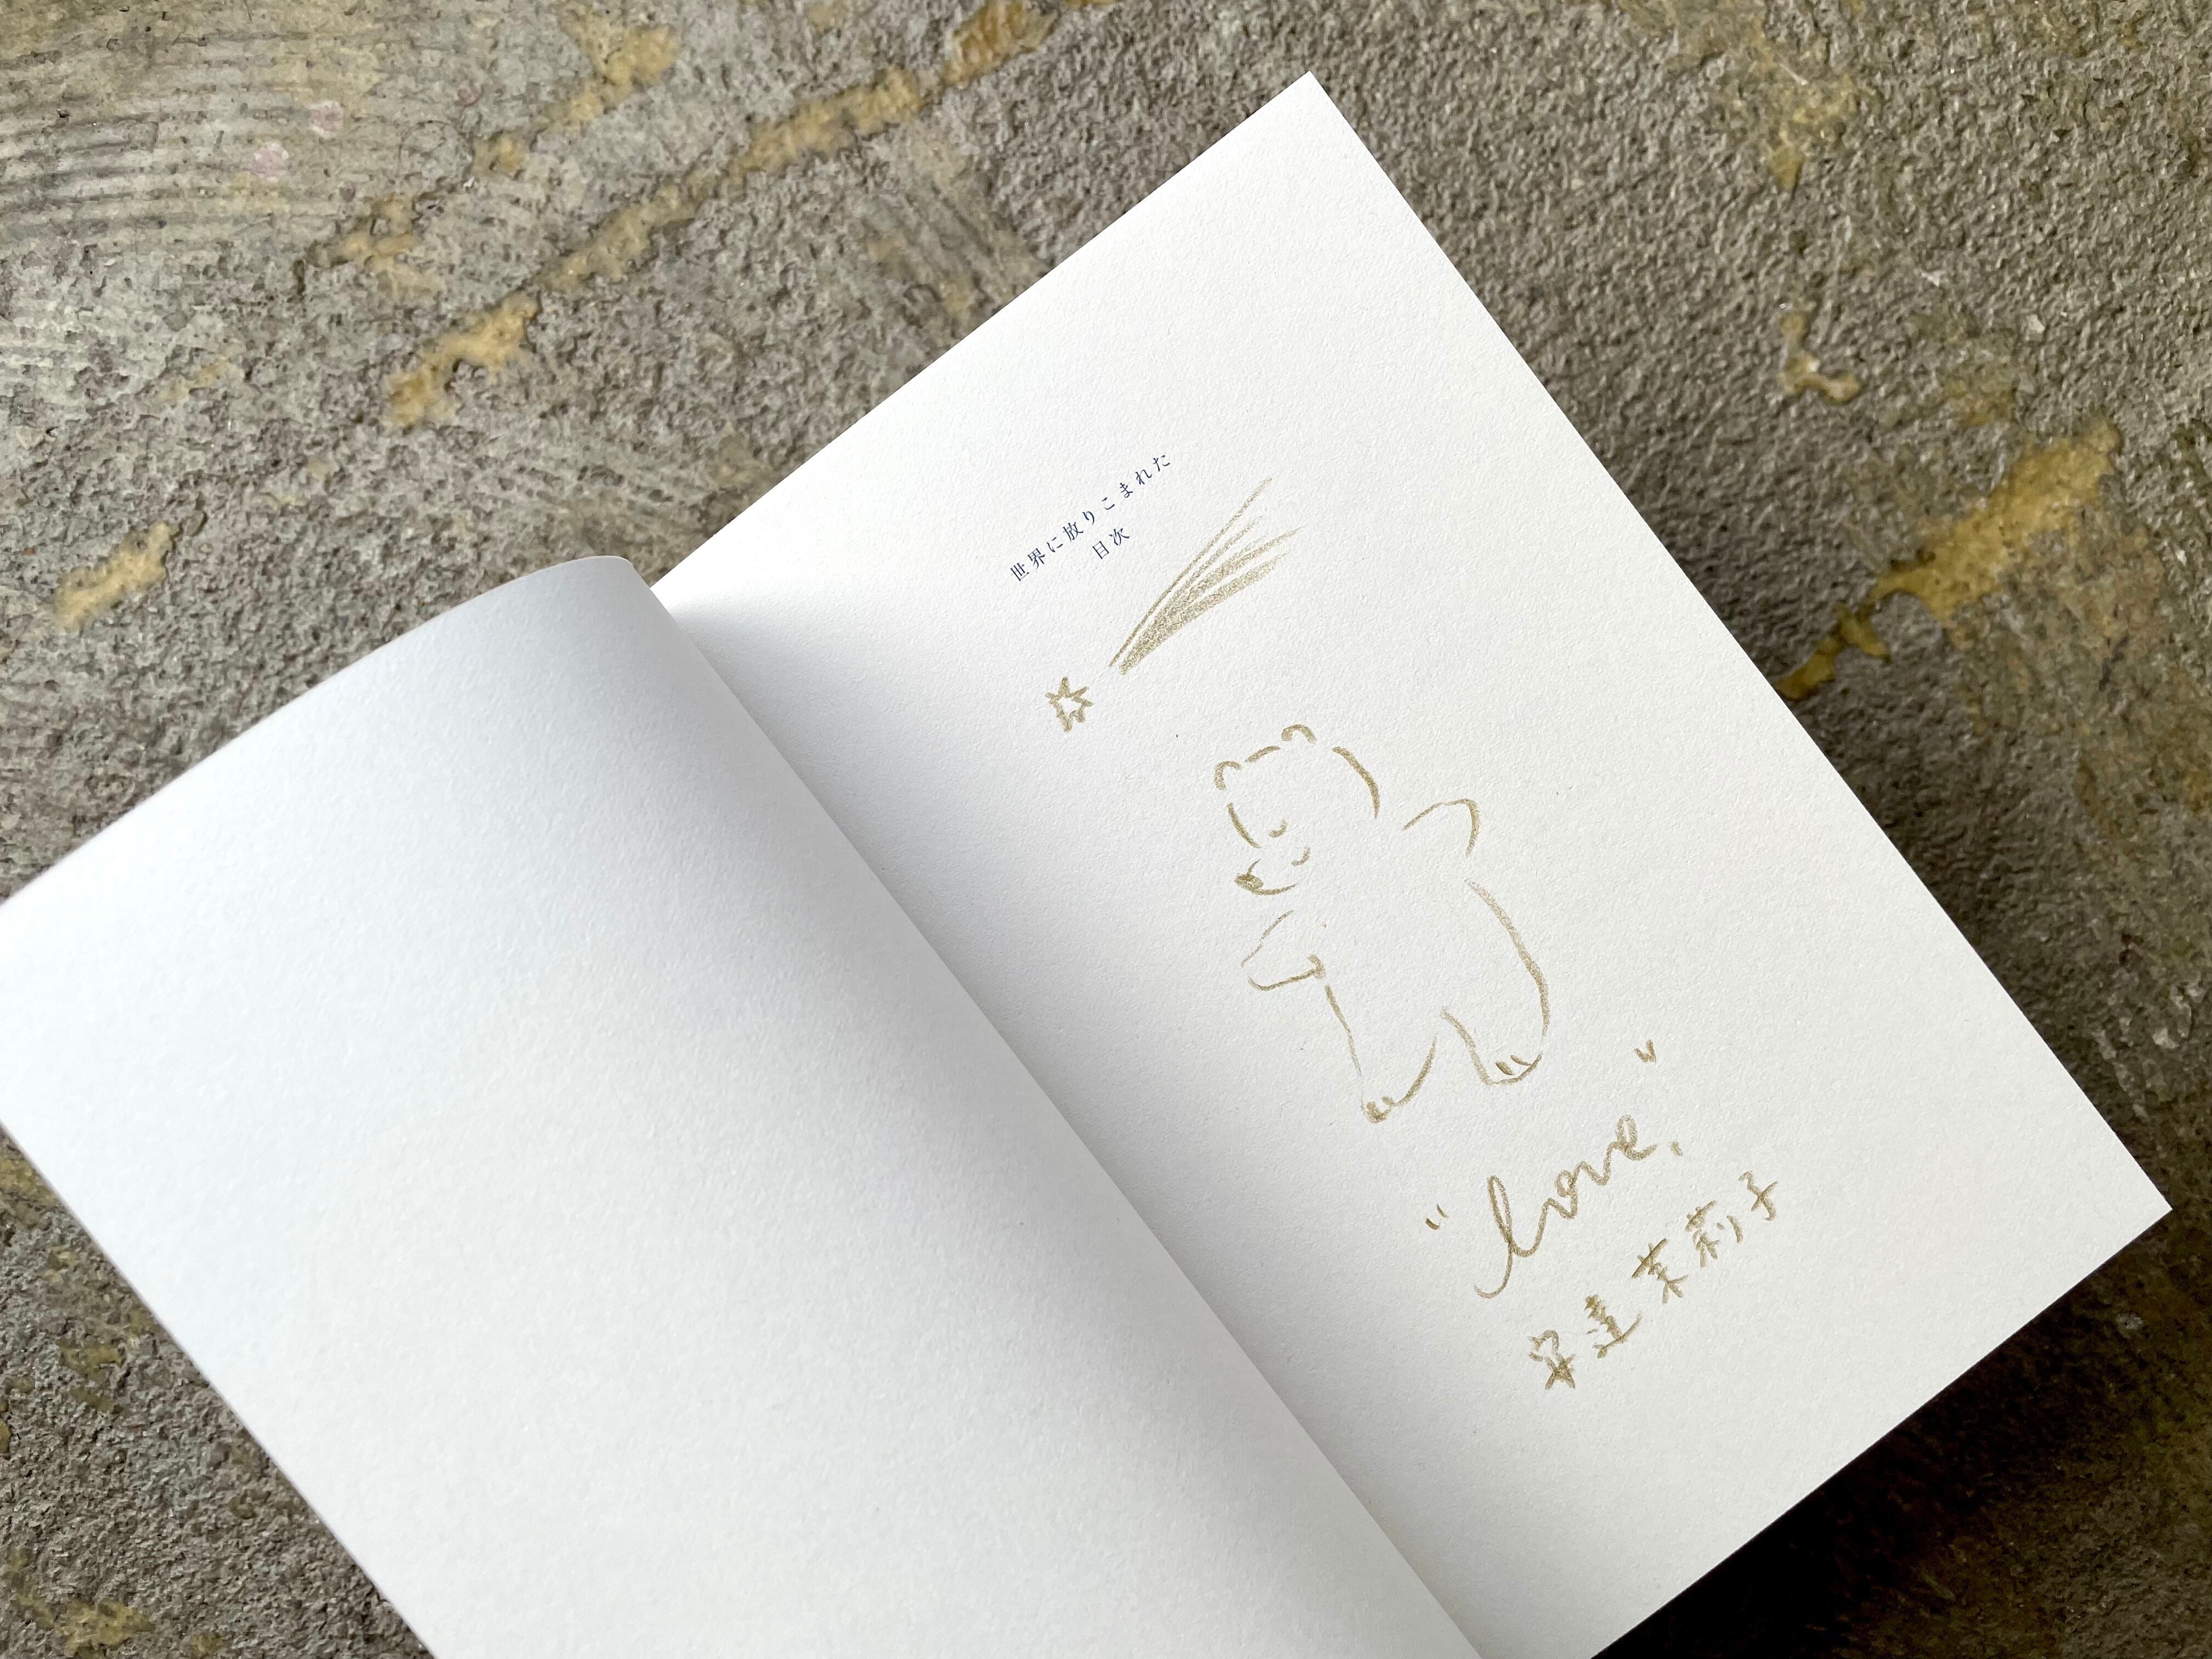 世界に放りこまれた
目次
"love,"
安達茉莉子